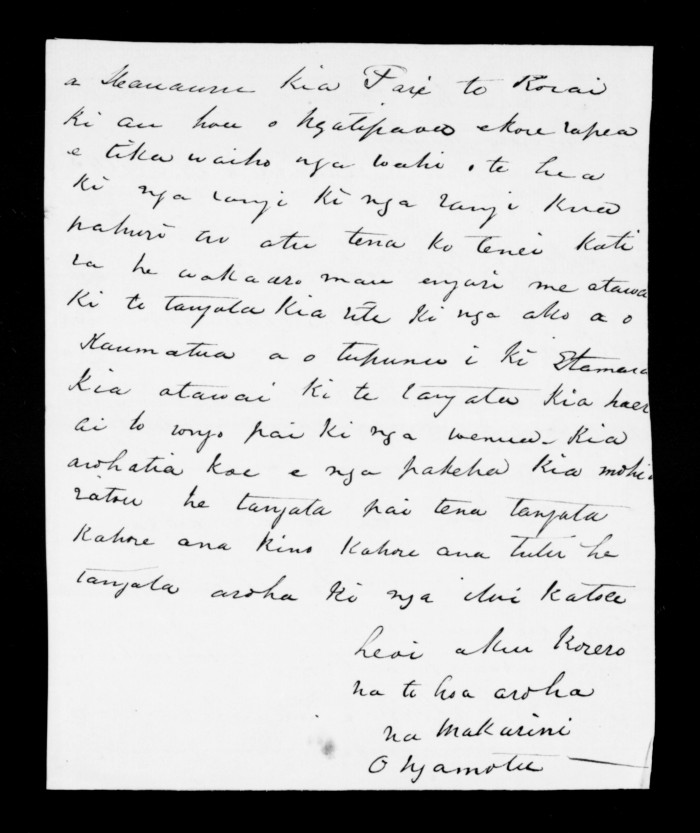 kia Tari to korai
ki au hou o Ngatipaoa ekore rapea
e tika waiho nga wahi o te he a
ki nga rangi ki nga rangi kua
pahuri atu tena ko tenei kati
ra he wakaaro mau engari me atawai
ki te tangata kia rite ki nga ako a o
kaumatua a o tupuna i ki
kia atawai ki te tangata kia haere
ai to rongo pai ki nga wenua. kia
arohatia koe e nga pakeha kia mohio
ratou he tangata pai tena tangata
kahore ana kino kahore ana tutu he
tangata aroha ki nga iwi katoa
heoi aku korero
na to hoa aroha
na Makarini
O Ngamotu